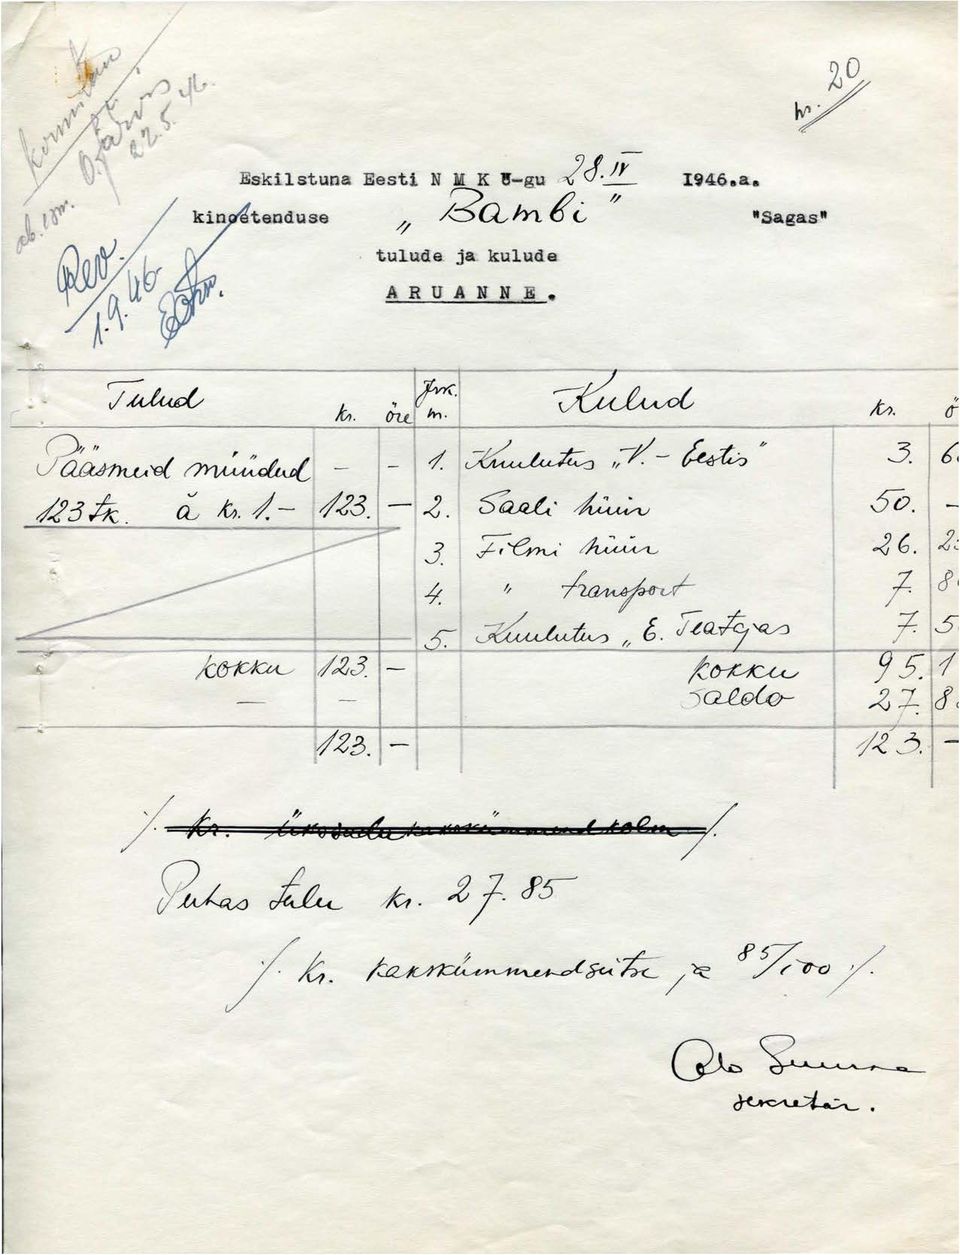 nr. 20
27.5.46.
Eskilstuna Eesti N M K Ü-gu 28.IV 1946.a.
kinoetenduse "Bambi" "Sagas"
tulude ja kulude
ARUANNE.
Rev.
1.9.46
Tulud kr. öre Jrk. m. Kulud kr. ö
Pääsmeid müüdud - - 1. Kuulutus „V.-Eestis" 3. 6
123 tk. à kr. 1.- 123. - 2. Saali hüür 50. -
3. Filmi hüür 26. 2
4. " transport 7. 8
5. Kuulutus „E. Teatajas 7. 5
kokku 123. - kokku 95. 1
- - Saldo 27. 8
123. - 123. -
/. Kr. Ükssada kakskümmend kolm /.
Puhas tulu kr. 27.85
/. Kr. kakskümmendseitse ja 85/100 /.
sekretär.